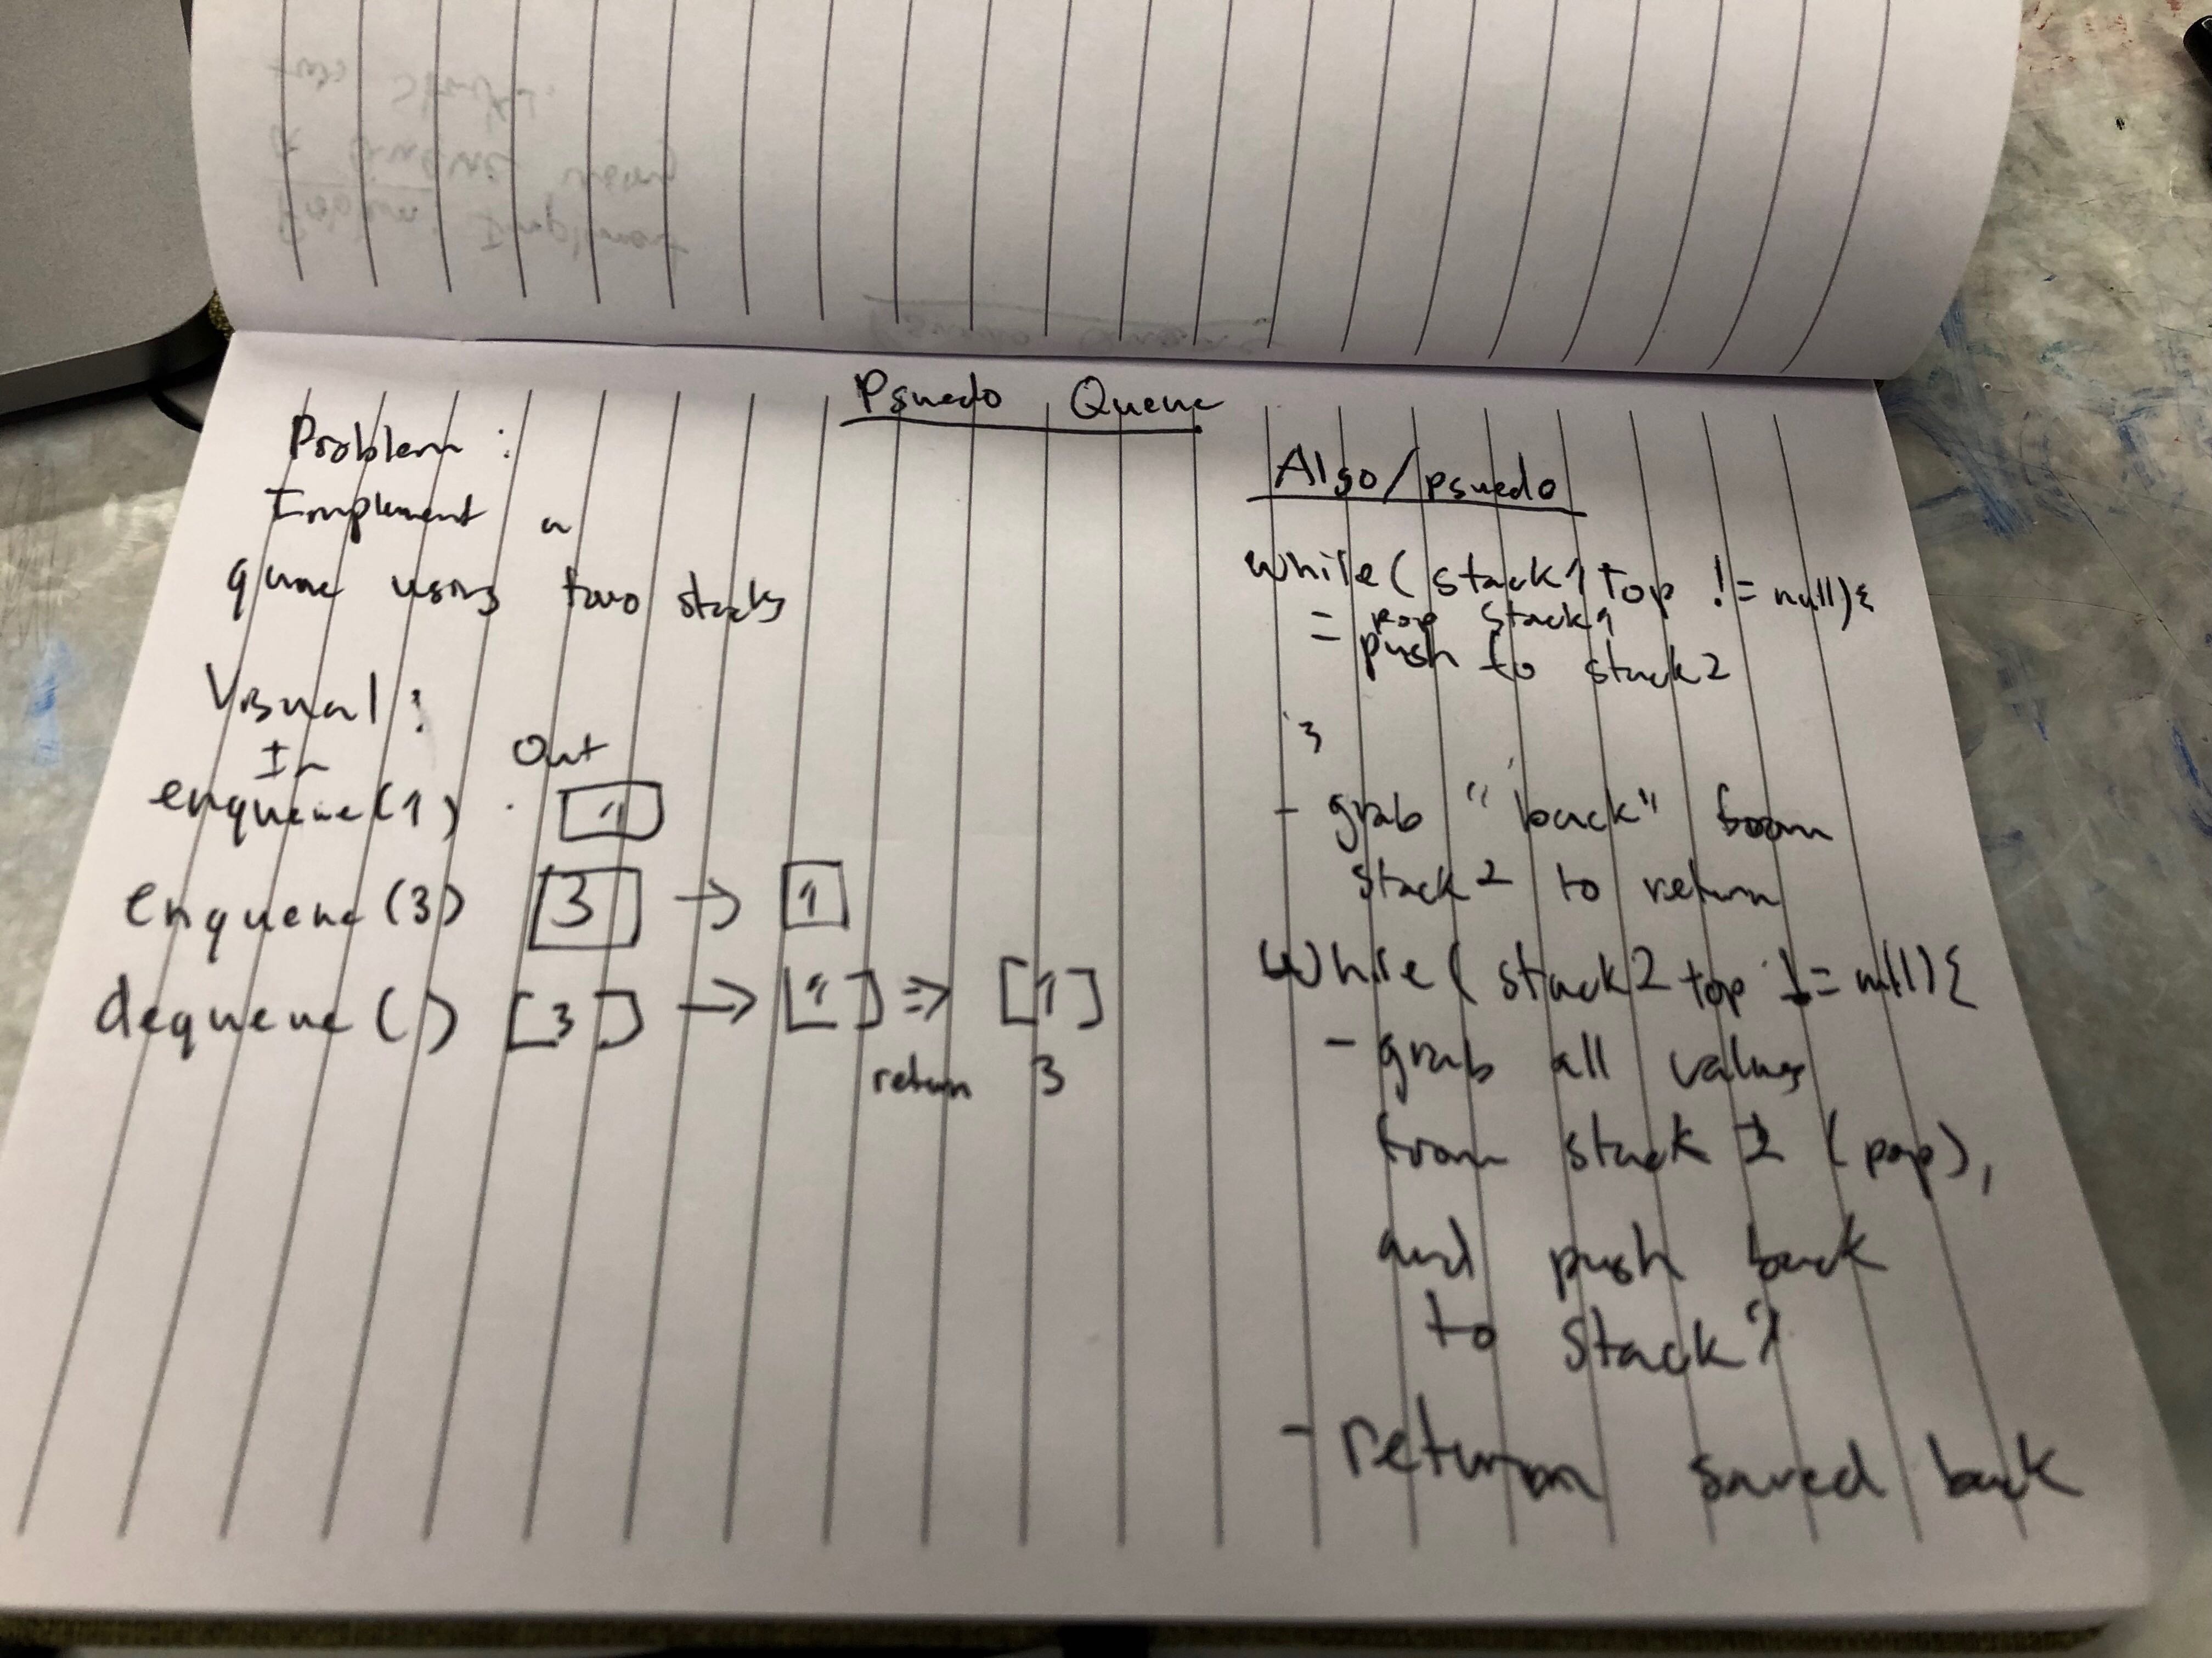 Psuedo Queue
Problem :
Implement a
queue using two stacks
Visual :
In Out
enqueue(1) 1
enqueue(3) 3 → 1
dequeue() [3] → [1] ⇒ [1]
return 3
Algo/psuedo
while( stack1 top != null){
= pop stack1
= push to stack2
}
- grab "back" from
stack2 to return
while( stack2 top != null){
- grab all values
from stack 2 (pop),
and push back
to stack1
- return saved back